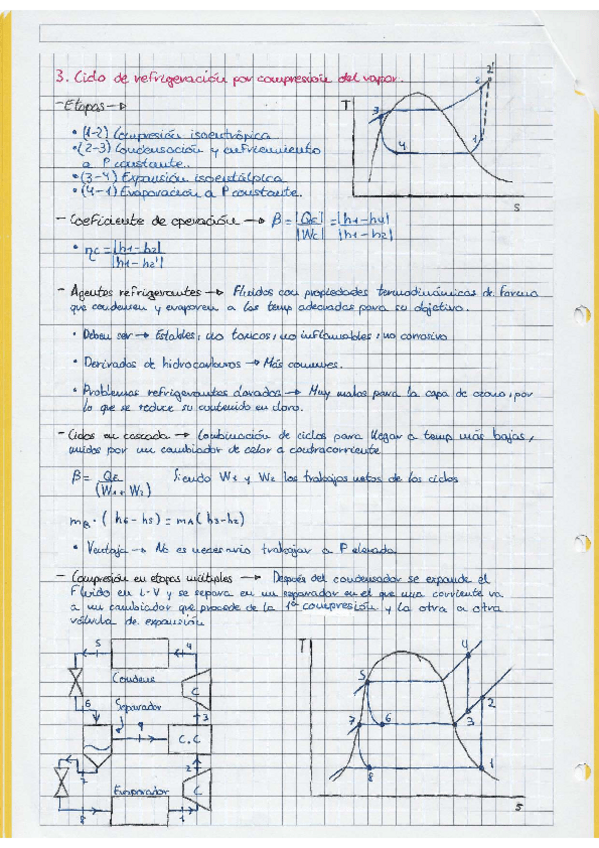 3. Ciclo de refrigeración por compresión del vapor.
- Etapas →
• (1-2) Compresión isoentrópica
• (2-3) Condensación y enfriamiento
a P constante.
• (3-4) Expansión isoentálpica.
• (4-1) Evaporación a P constante.
T
3
2
2'
4
1
s
- Coeficiente de operación → β = |QE| / |WC| = |h1-h4| / |h1-h2|
• ηc = |h1-h2| / |h1-h2'|
- Agentes refrigerantes → Fluidos con propiedades termodinámicas de forma
que condensen y evaporen a las temp adecuadas para su objetivo.
• Deben ser → Estables, no toxicos, no inflamables, no corrosivo
• Derivados de hidrocarburos → Más comunes.
• Problemas refrigerantes clorados → Muy malos para la capa de ozono, por
lo que se reduce su contenido en cloro.
- Ciclos en cascada → Combinación de ciclos para llegar a temp más bajas,
unidos por un cambiador de calor a contracorriente
β = QE / (W1 + W2) Siendo W1 y W2 los trabajos netos de los ciclos
mB · (h6-h5) = mA (h3-h2)
• Ventaja → No es necesario trabajar a P elevada
- Compresión en etapas múltiples → Después del condensador se expande el
fluido en L-V y se separa en un separador en el que una corriente va
a un cambiador que procede de la 1ª compresión y la otra a otra
válvula de expansión
5
4
Condens
C
6
Separador
9
3
C.C
7
2
Evaporador
C
8
1
T
5
4
7
6
3
2
8
1
s